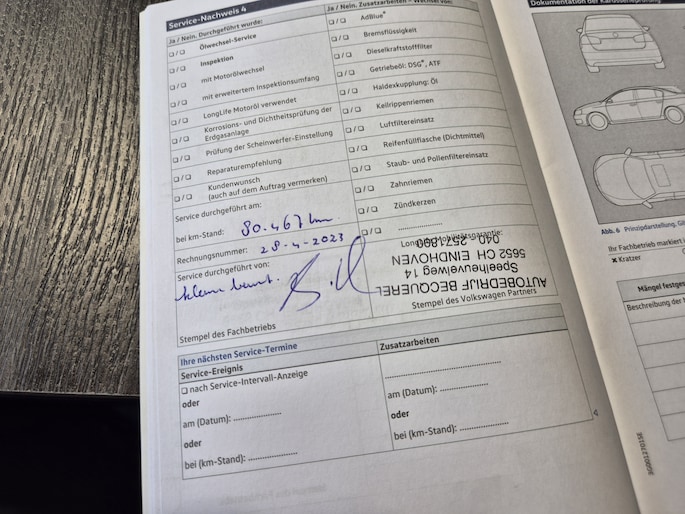 Service-Nachweis 4
Ja / Nein. Durchgeführt wurde:
❏ / ❏ Ölwechsel-Service
Inspektion
❏ / ❏ mit Motorölwechsel
❏ / ❏ mit erweitertem Inspektionsumfang
❏ / ❏ LongLife Motoröl verwendet
❏ / ❏ Korrosions- und Dichtheitsprüfung der
Erdgasanlage
❏ / ❏ Prüfung der Scheinwerfer-Einstellung
❏ / ❏ Reparaturempfehlung
❏ / ❏ Kundenwunsch
(auch auf dem Auftrag vermerken)
Service durchgeführt am:
bei km-Stand: 80.467 km
Rechnungsnummer: 28-4-2023
Service durchgeführt von:
kleine beurt.
Stempel des Fachbetriebs
Ja / Nein. Zusatzarbeiten – Wechsel von:
❏ / ❏ AdBlue®
❏ / ❏ Bremsflüssigkeit
❏ / ❏ Dieselkraftstofffilter
❏ / ❏ Getriebeöl: DSG®, ATF
❏ / ❏ Haldexkupplung: Öl
❏ / ❏ Keilrippenriemen
❏ / ❏ Luftfiltereinsatz
❏ / ❏ Reifenfüllflasche (Dichtmittel)
❏ / ❏ Staub- und Pollenfiltereinsatz
❏ / ❏ Zahnriemen
❏ / ❏ Zündkerzen
❏ / ❏ ....................
LongLife Mobilitätsgarantie:
AUTOBEDRIJF BECQUEREL
Speelheuvelweg 14
5652 CH EINDHOVEN
040 - 257.800
Stempel des Volkswagen Partners
Ihre nächsten Service-Termine
Service-Ereignis
❏ nach Service-Intervall-Anzeige
oder
am (Datum): ................
oder
bei (km-Stand): ................
Zusatzarbeiten
............................
am (Datum): ................
oder
bei (km-Stand): ................
Dokumentation der Karosserieprüfung
Abb. 6 Prinzipdarstellung.
Ihr Fachbetrieb markiert
✖ Kratzer
Mängel
Beschreibung der